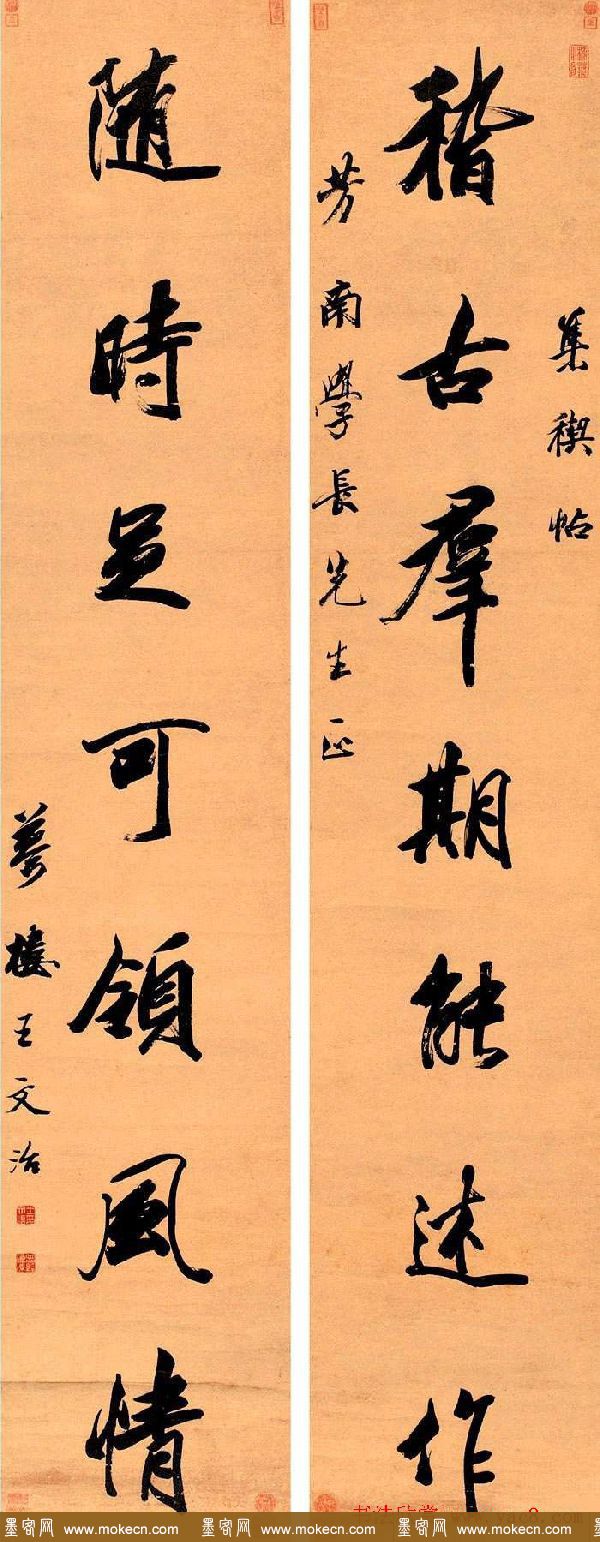 集禊帖
稽古羣期能述作
芳南學長先生正
隨時足可領風情
夢樓王文治
书法欣赏 www.yac8.com
墨客网 www.mokecn.com 墨客网 www.mokecn.com 墨客网 www.mokecn.com